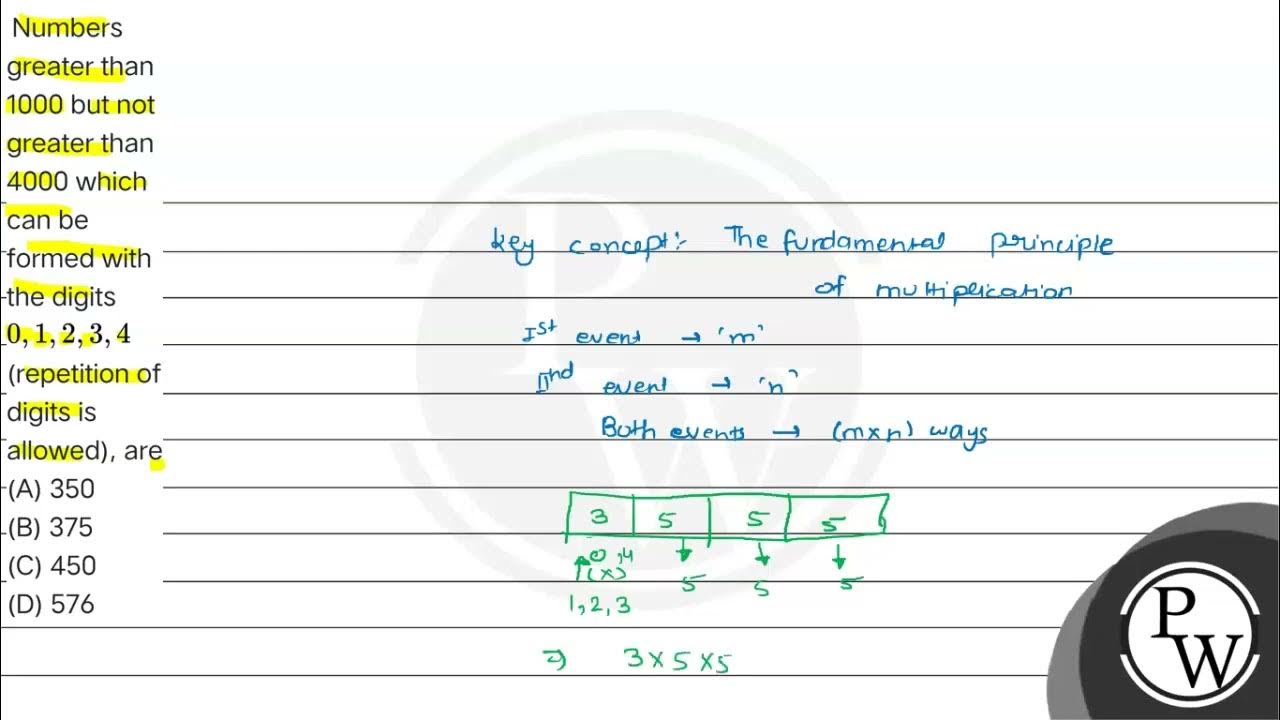 Numbers
greater than
1000 but not
greater than
4000 which
can be
formed with
the digits
0, 1, 2, 3, 4
(repetition of
digits is
allowed), are
(A) 350
(B) 375
(C) 450
(D) 576
key concept:- The fundamental principle
of multiplication
Ist event → 'm'
IInd event → 'n'
Both events → (m×n) ways
3 5 5 5
0,4
(×) 5 5 5
1,2,3
⇒ 3×5×5
P
W
P
W